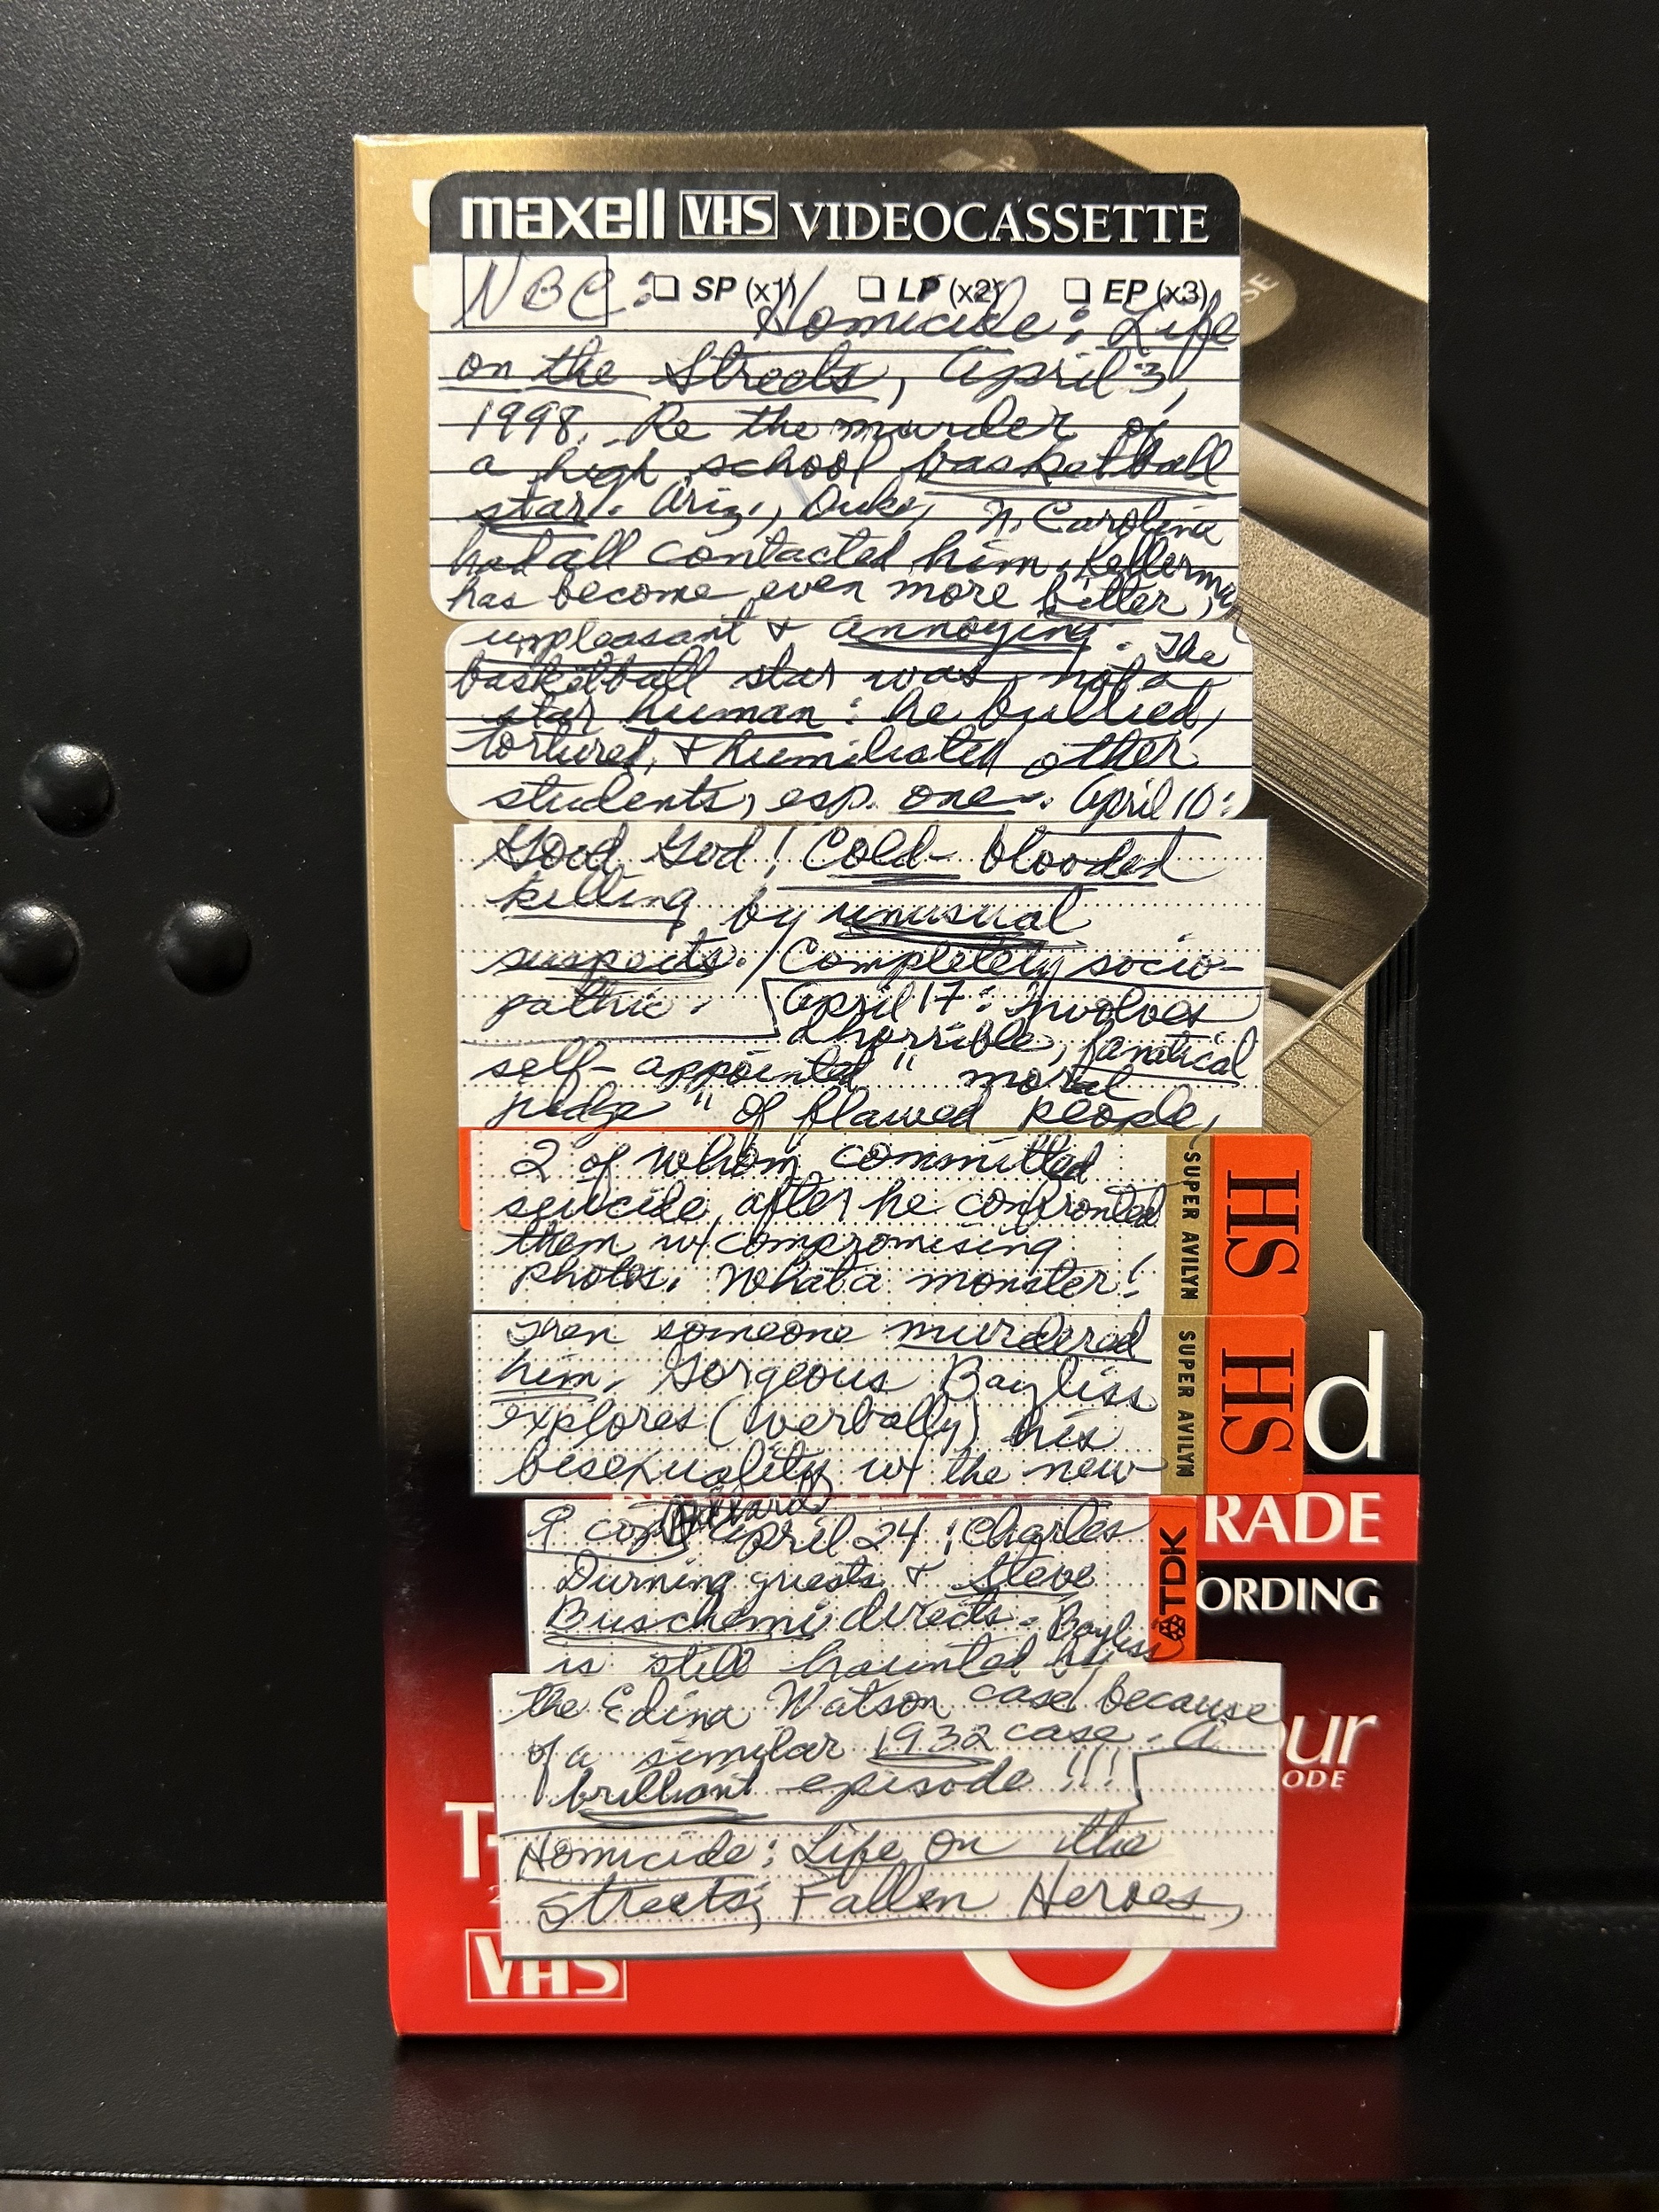 maxell VHS VIDEOCASSETTE
NBC: SP (x1) LP (x2) EP (x3)
Homicide: Life
on the Streets, April 3,
1998. Re the murder of
a high school basketball
star. Ariz., Duke, N. Carolina
had all contacted him. Kellerman
has become even more bitter,
unpleasant & annoying. The
basketball star was not a
star human: he bullied,
tortured, & humiliated other
students, esp. one. April 10:
Good God! Cold-blooded
killing by unusual
suspects. Completely socio-
pathic. April 17: Involves
a horrible, fanatical
self-appointed "moral
judge" of flawed people,
2 of whom committed
suicide after he confronted
them w/ compromising
photos. What a monster!
Then someone murdered
him. Gorgeous Bayliss
explores (verbally) his
bisexuality w/ the new
♀ cop Ballard
April 24: Charles
Durning guests & Steve
Buscemi directs. Bayliss
is still haunted by
the Edina Watson case because
of a similar 1932 case. A
brilliant episode!!!
Homicide: Life on the
Streets, Fallen Heroes,
HS
SUPER AVILYN
HS
SUPER AVILYN
TDK
SE
d
RADE
ORDING
our
ODE
T-
VHS